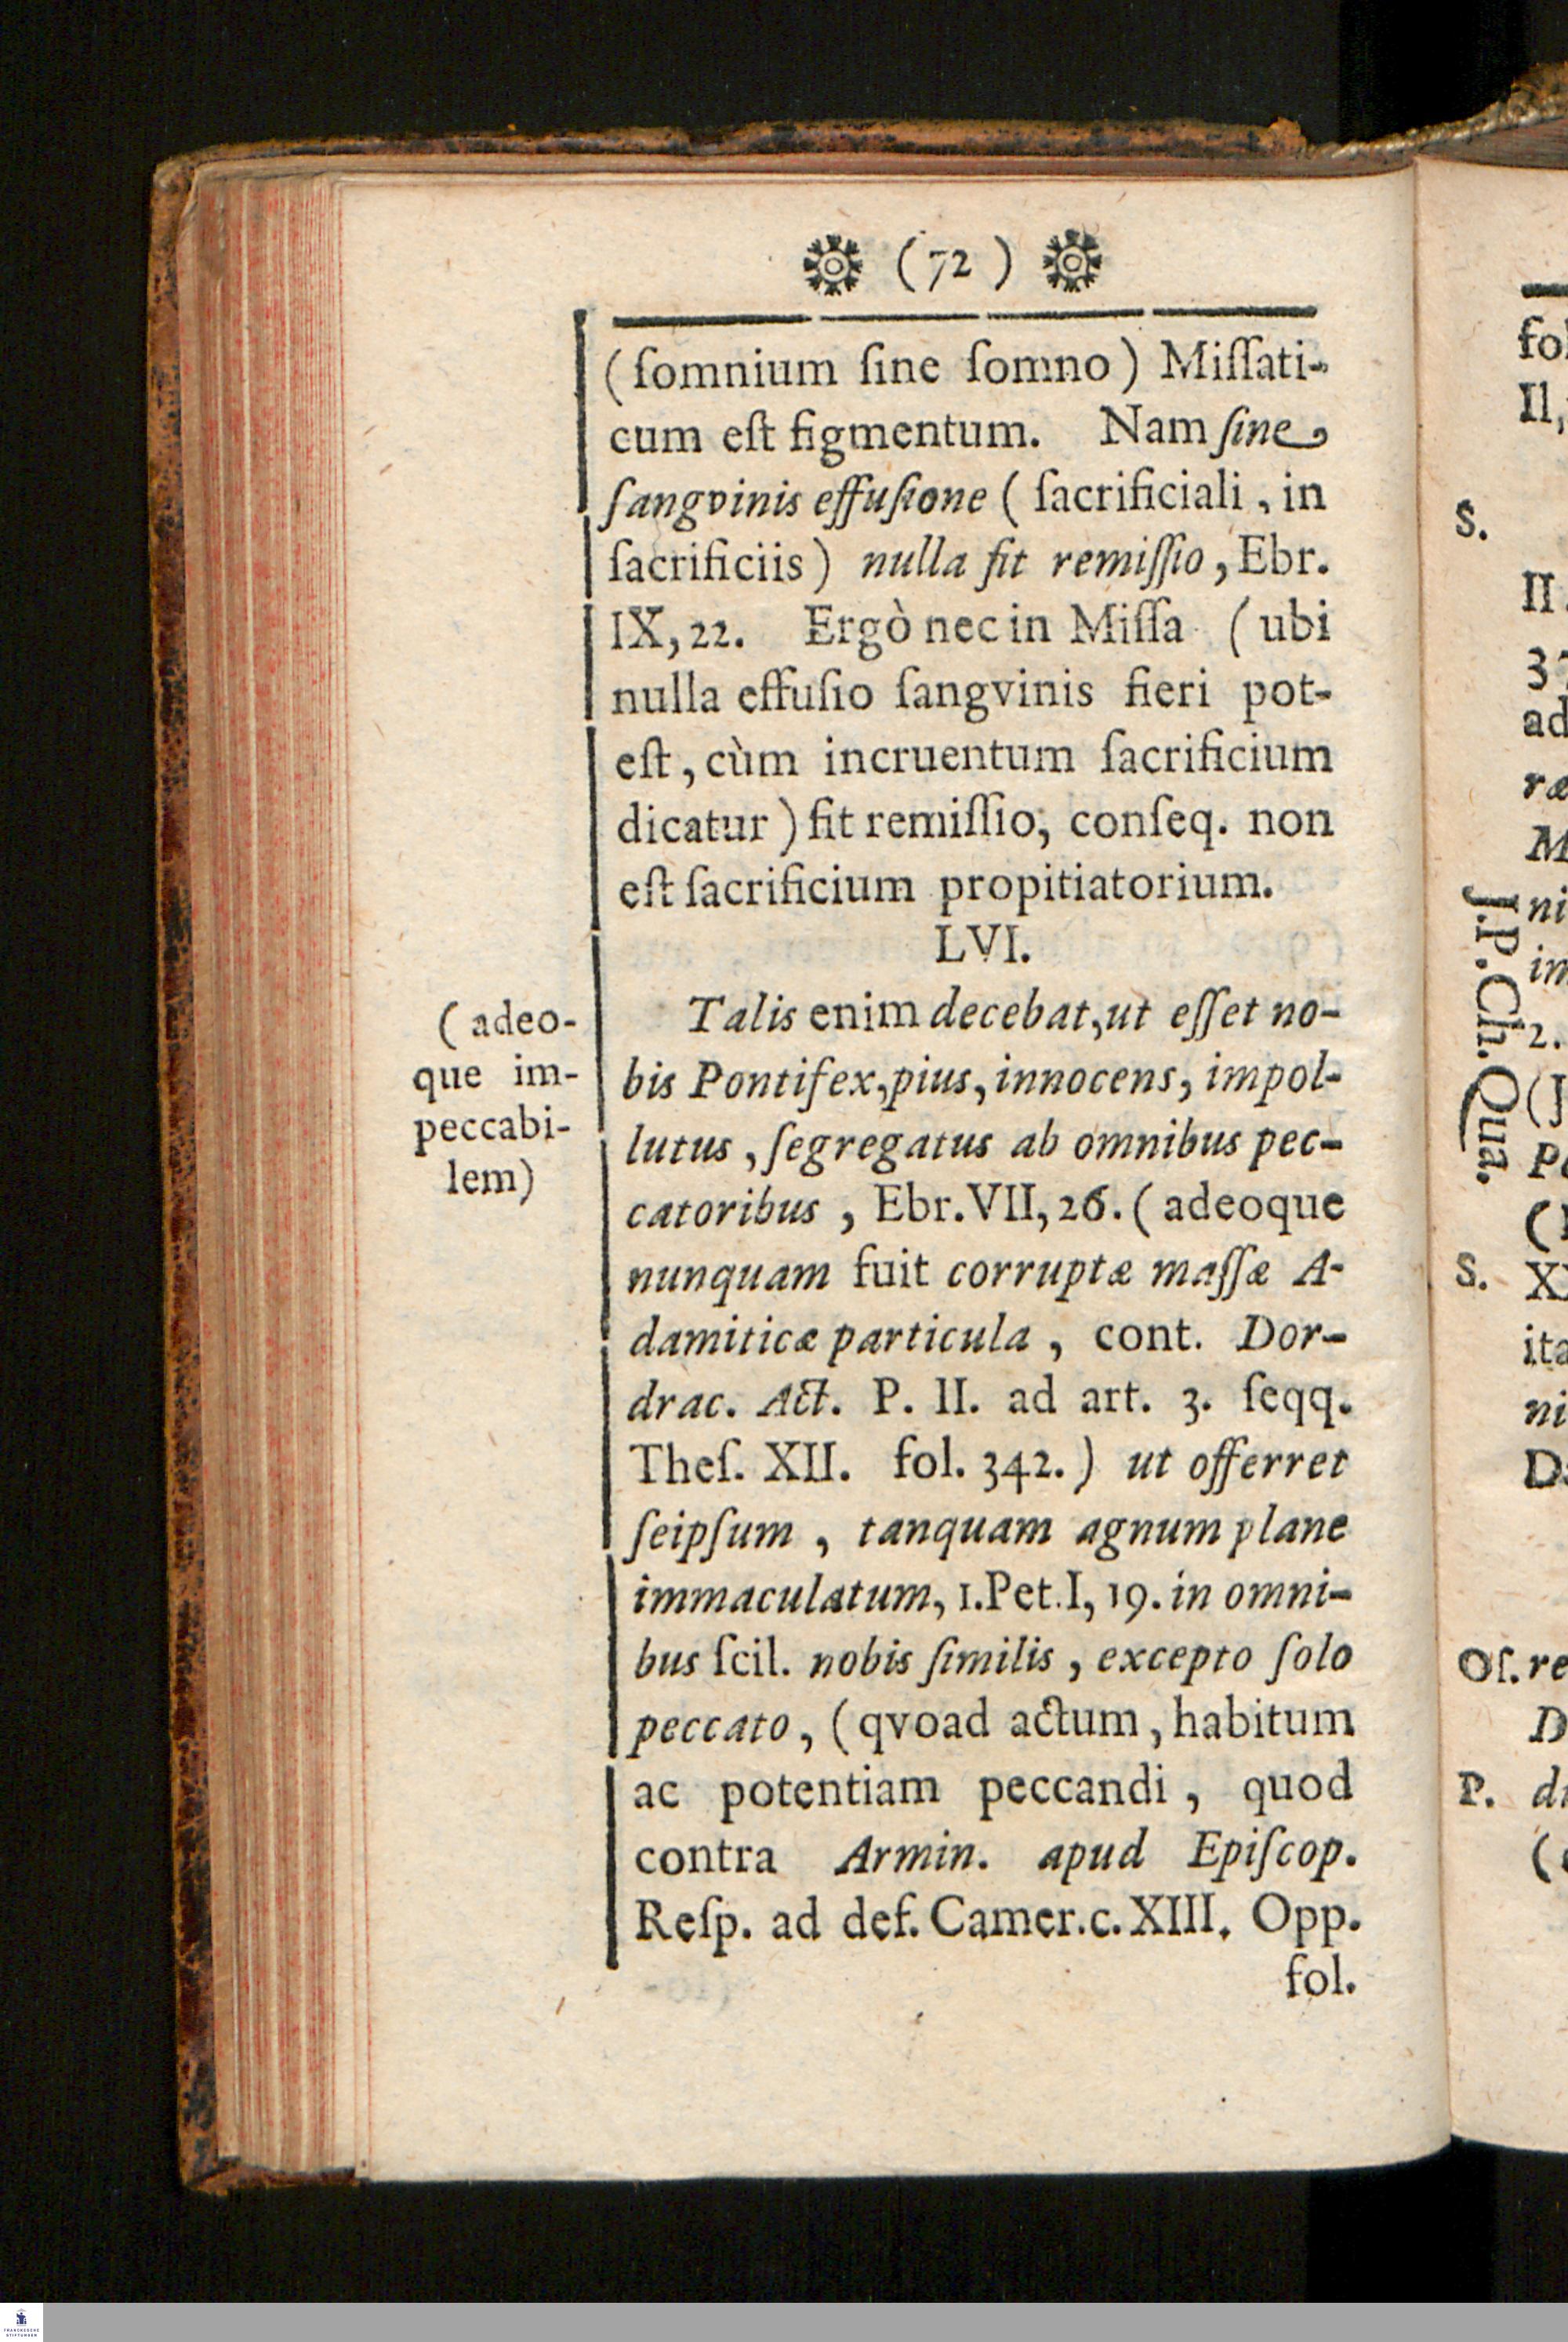 ( 72 )
(ſomnium ſine ſomno) Miſſati-
cum eſt figmentum. Nam ſine
ſangvinis effuſione ( ſacrificiali, in
ſacrificiis) nulla fit remiſſio, Ebr.
IX, 22. Ergò nec in Miſſa (ubi
nulla effuſio ſangvinis fieri pot-
eſt, cùm incruentum ſacrificium
dicatur) fit remiſſio, conſeq. non
eſt ſacrificium propitiatorium.
LVI.
Talis enim decebat, ut eſſet no-
bis Pontifex, pius, innocens, impol-
lutus, ſegregatus ab omnibus pec-
catoribus, Ebr. VII, 26. (adeoque
nunquam fuit corruptæ maſſæ A-
damiticæ particula, cont. Dor-
drac. Act. P. II. ad art. 3. ſeqq.
Theſ. XII. fol. 342.) ut offerret
ſeipſum, tanquam agnum plane
immaculatum, 1. Pet. I, 19. in omni-
bus ſcil. nobis ſimilis, excepto ſolo
peccato, (qvoad actum, habitum
ac potentiam peccandi, quod
contra Armin. apud Epiſcop.
Reſp. ad def. Camer. c. XIII. Opp.
fol.
(adeo-
que im-
peccabi-
lem)
S.
J.P.Ch.Qua.
S.
Oſ.
P.
FRANCKESCHE
STIFTUNGEN